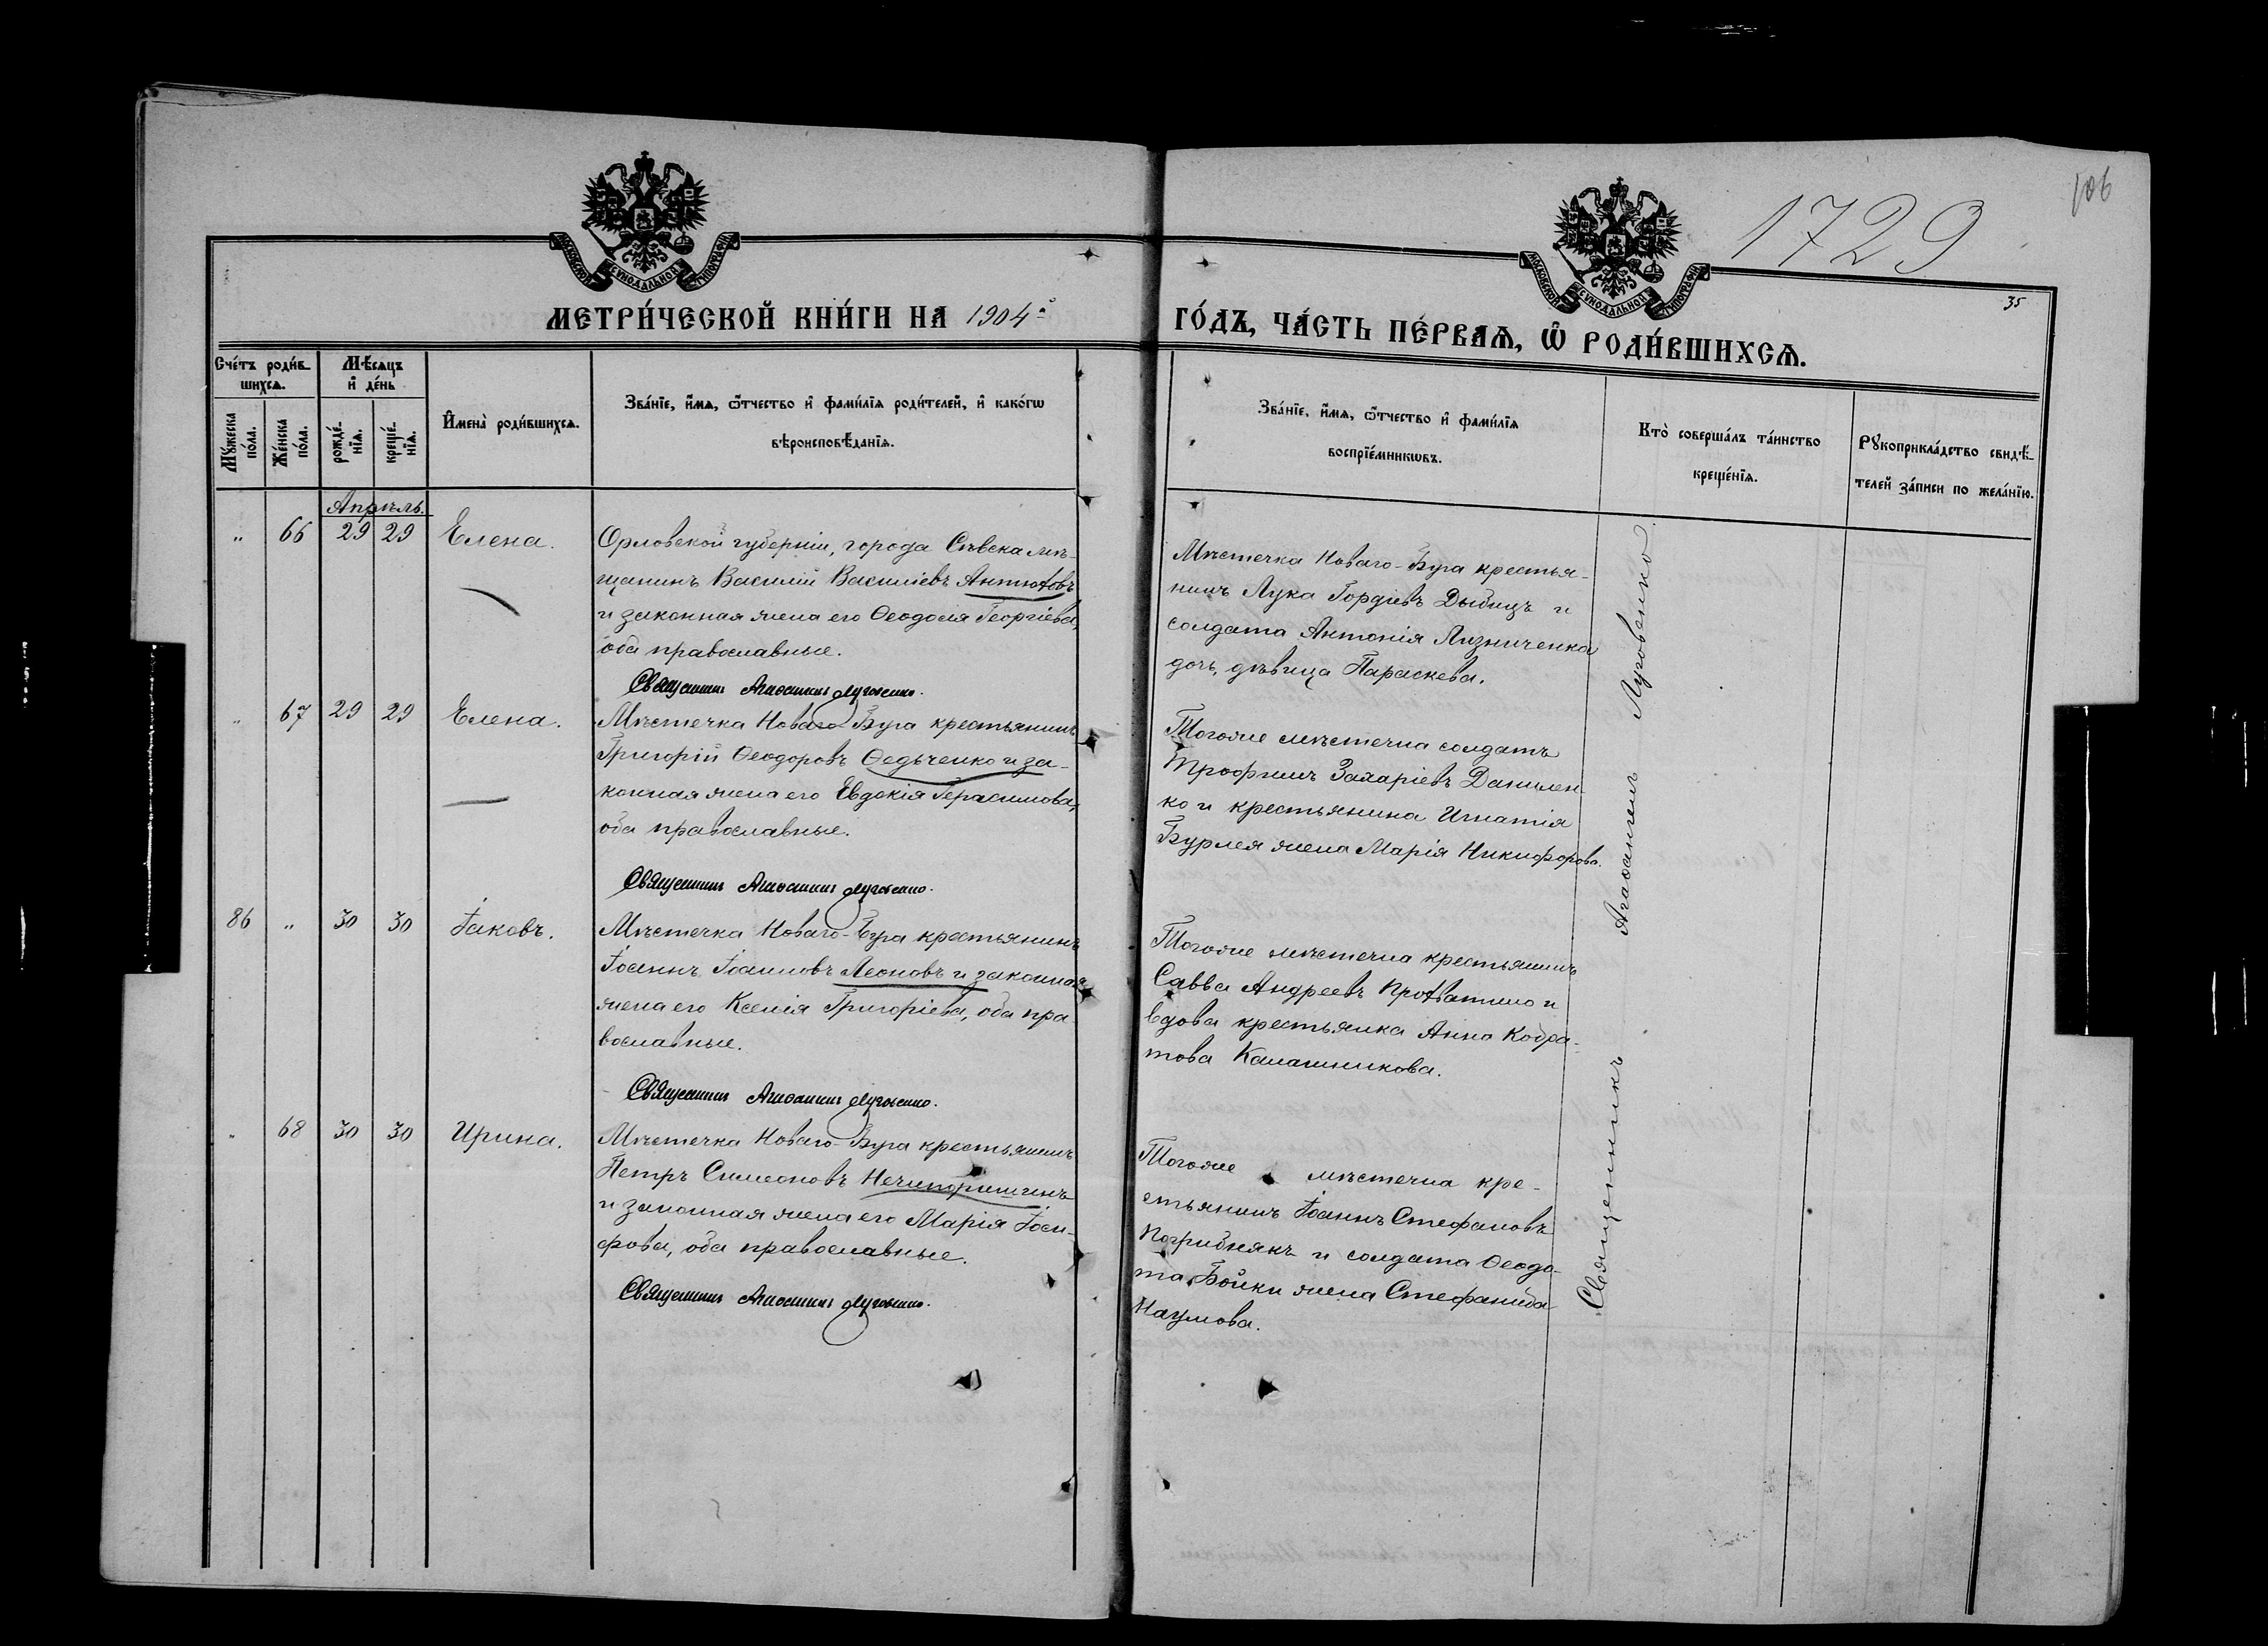 106
1729
35
МОСКОВСКОЙ СѴНОДАЛЬНОЙ ТИПОГРАФІИ
МОСКОВСКОЙ СѴНОДАЛЬНОЙ ТИПОГРАФІИ
МЕТРИ́ЧЕСКОЙ КНИ́ГИ НА 1904й
ГО́ДЪ, ЧА́СТЬ ПЕ́РВАѦ, Ѡ҆ РОДИ́ВШИХСѦ.
Сче́тъ роди́в-
шихсѧ.
Мѣ́сѧцъ
и҆ де́нь
Мꙋ́жеска
по́ла.
Же́нска
по́ла.
рожде́-
нїѧ.
креще́-
нїѧ.
И҆мена̀ роди́вшихсѧ.
Зва́нїе, и҆́мѧ, ѻ҆́тчество и҆ фами́лїѧ роди́телей, и҆ како́гѡ
вѣроисповѣ́данїѧ.
Зва́нїе, и҆́мѧ, ѻ҆́тчество и҆ фами́лїѧ
воспрїе́мникѡвъ.
Кто̀ соверша́лъ та́инство
креще́нїѧ.
Рꙋкоприкла́дство свидѣ́-
телей за́писи по жела́нїю.
Апрѣль.
" 66 29 29 Елена.
Орловской губерніи, города Сѣвска мѣ-
щанинъ Василій Василіевъ Антютовъ
и законная жена его Ѳеодосія Георгіева,
оба православные.
Священникъ Агаѳангелъ Луговенко.
Мѣстечка Новаго-Буга крестья-
нинъ Лука Гордіевъ Дыбицъ и
солдата Антонія Лизниченка
дочь, дѣвица Параскева.
" 67 29 29 Елена.
Мѣстечка Новаго Буга крестьянинъ
Григорій Ѳеодоровъ Ѳедьченко и за-
конная жена его Евдокія Герасимова,
оба православные.
Священникъ Агаѳангелъ Луговенко.
Тогоже мѣстечка солдатъ
Трофимъ Захаріевъ Данилен-
ко и крестьянина Игнатія
Бурлея жена Марія Никифорова.
86 " 30 30 Іаковъ.
Мѣстечка Новаго-Буга крестьянинъ
Іоаннъ Іоанновъ Леоновъ и законная
жена его Ксенія Григоріева, оба пра-
вославные.
Священникъ Агаѳангелъ Луговенко.
Тогоже мѣстечка крестьянинъ
Савва Андреевъ и
вдова крестьянка Анна Кодра-
това Калашникова.
" 68 30 30 Ирина.
Мѣстечка Новаго-Буга крестьянинъ
Петръ Симеоновъ Нечипоришинъ
и законная жена его Марія Іоси-
фова, оба православные.
Священникъ Агаѳангелъ Луговенко.
Тогоже мѣстечка кре-
стьянинъ Іоаннъ Стефановъ
Погрибнякъ и солдата Ѳеодо-
та Бойки жена Стефанида
Наумова.
Священникъ Агаѳангелъ Луговенко